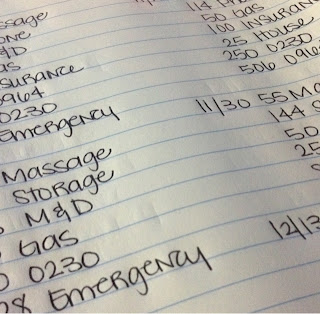 ssage
one
&D
as
surance
0230
Emergency
Massage
Storage
M&D
Gas
0230
28 Emergency
114
50 Gas
100 Insuran
25 House
250 0230
506 096
11/30 55 Ma
144 S
50
25
12/13